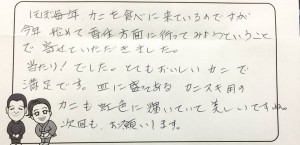 ほぼ毎年 カニを食べに来ているのですが
今年 始めて 香住方面に行って みようということ
で 寄せていただきました。
当たり! でした。とてもおいしい カニ で
満足です。皿に盛ってある カニスキ用の
カニも 虹色に 輝いていて 美しいですね。
次回も、お願いします。